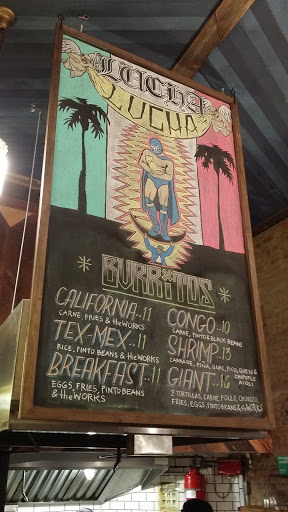 LUCHA
LUCHA
BURRITOS
CALIFORNIA..11
CARNE, FRIES & the WORKS
TEX-MEX..11
RICE, PINTO BEANS & the WORKS
BREAKFAST..11
EGGS, FRIES, PINTO BEANS
& the WORKS
CONGO..10
CARNE, PINTO & BLACK BEANS
SHRIMP.13
CABBAGE, PIÑA, GUAC, PICO, QUESO &
CHIPOTLE
AIOLI
GIANT..16
2 TORTILLAS, CARNE, POLLO, CHORIZO,
FRIES, EGGS, PINTO BEANS & the WORKS